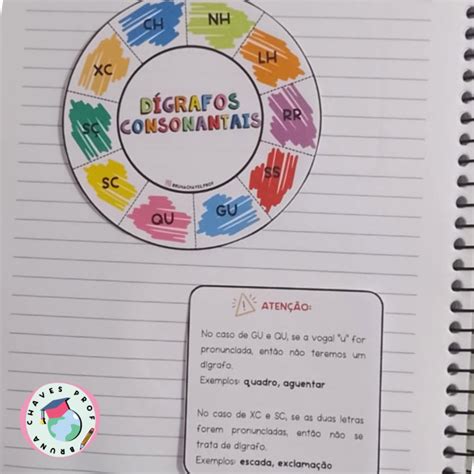 CH
NH
LH
RR
SS
GU
QU
SC
SÇ
XC
DÍGRAFOS
CONSONANTAIS
@BRUNACHAVES.PROF
ATENÇÃO:
No caso de GU e QU, se a vogal "u" for
pronunciada, então não teremos um
dígrafo.
Exemplos: quadro, aguentar
No caso de XC e SC, se as duas letras
forem pronunciadas, então não se
trata de dígrafo.
Exemplos: escada, exclamação
BRUNA CHAVES PROF